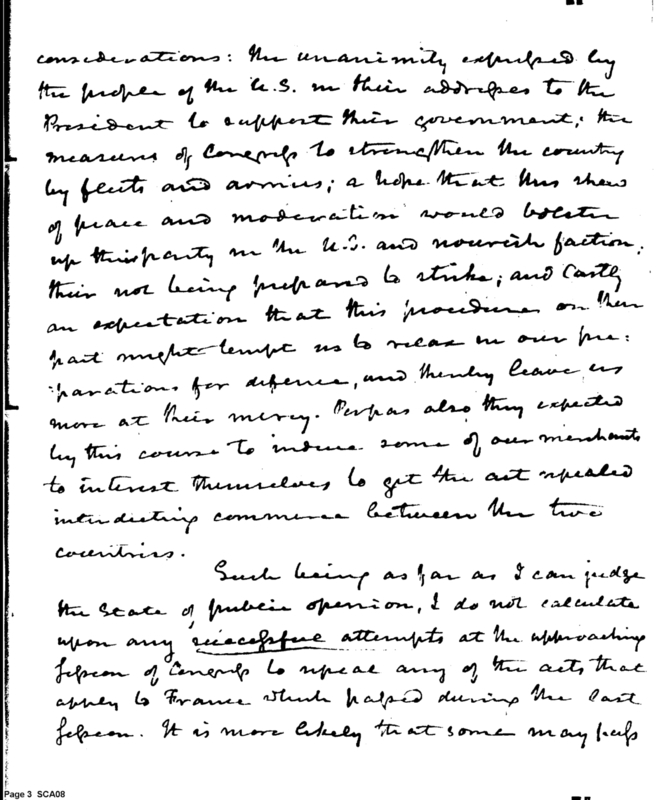 considerations: the unanimity expressed by
the people of the U.S. in their addresses to the
President to support their government; the
measures of Congress to strengthen the country
by fleets and armies; a hope that this shew
of peace and moderation would bolster
up their party in the U.S. and nourish faction;
their not being prepared to strike; and lastly
an expectation that this procedure on their
part might tempt us to relax in our pre:
:parations for defence, and thereby leave us
more at their mercy. Perpas also they expected
by this course to induce some of our merchants
to interest themselves to get the act repealed
interdicting commerce between the two
countries.
Such being as far as I can judge
the State of public openion, I do not calculate
upon any successful attempts at the approaching
Session of Congress to repeal any of the acts that
apply to France which passed during the last
Session. It is more likely that some may pass
Page 3 SCA08